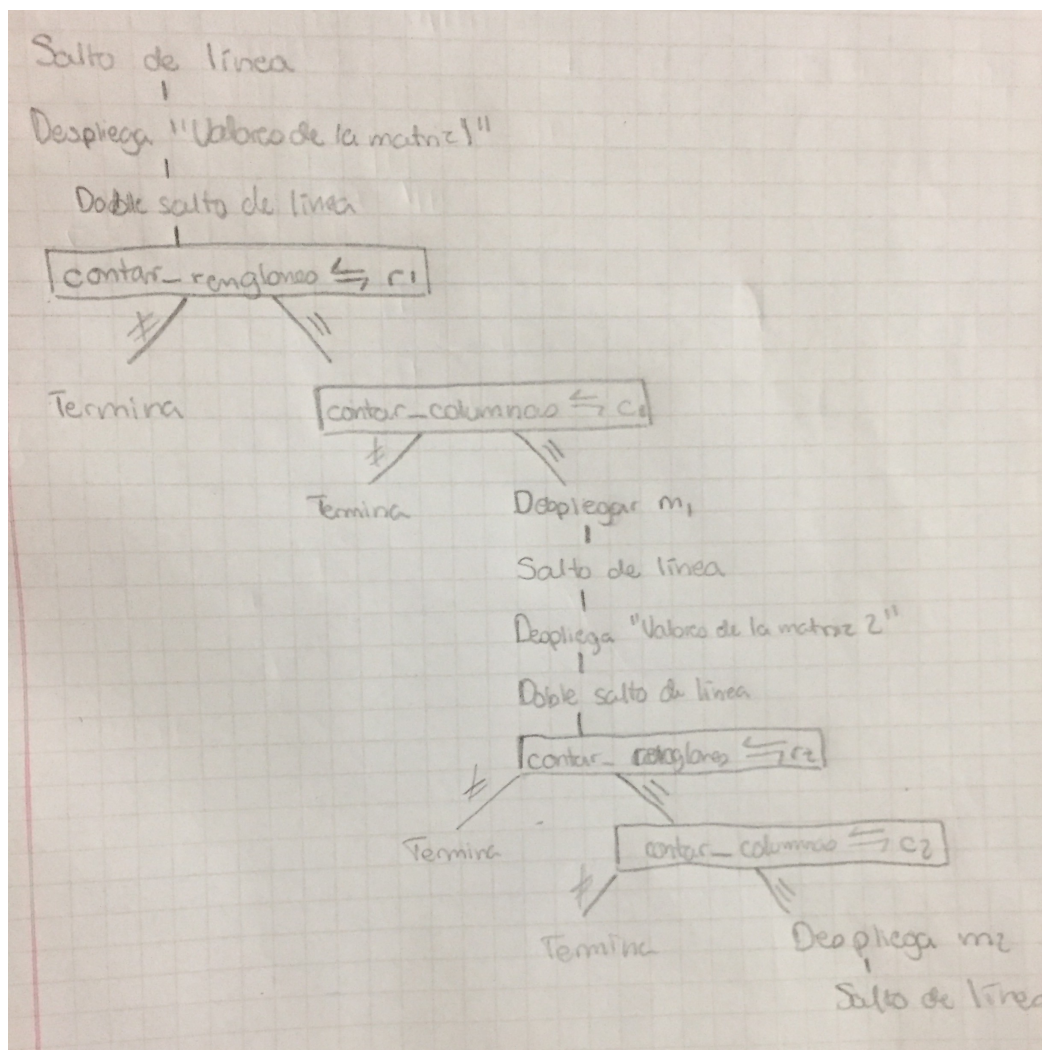 Salto de línea
Despliega "Valores de la matriz 1"
Doble salto de línea
contar_renglones ⇆ r1
≠ =
Termina
contar_columnas ⇆ c1
≠ =
Termina Desplegar m1
Salto de línea
Despliega "Valores de la matriz 2"
Doble salto de línea
contar_renglones ⇆ r2
≠ =
Termina
contar_columnas ⇆ c2
≠ =
Termina Despliega m2
Salto de línea